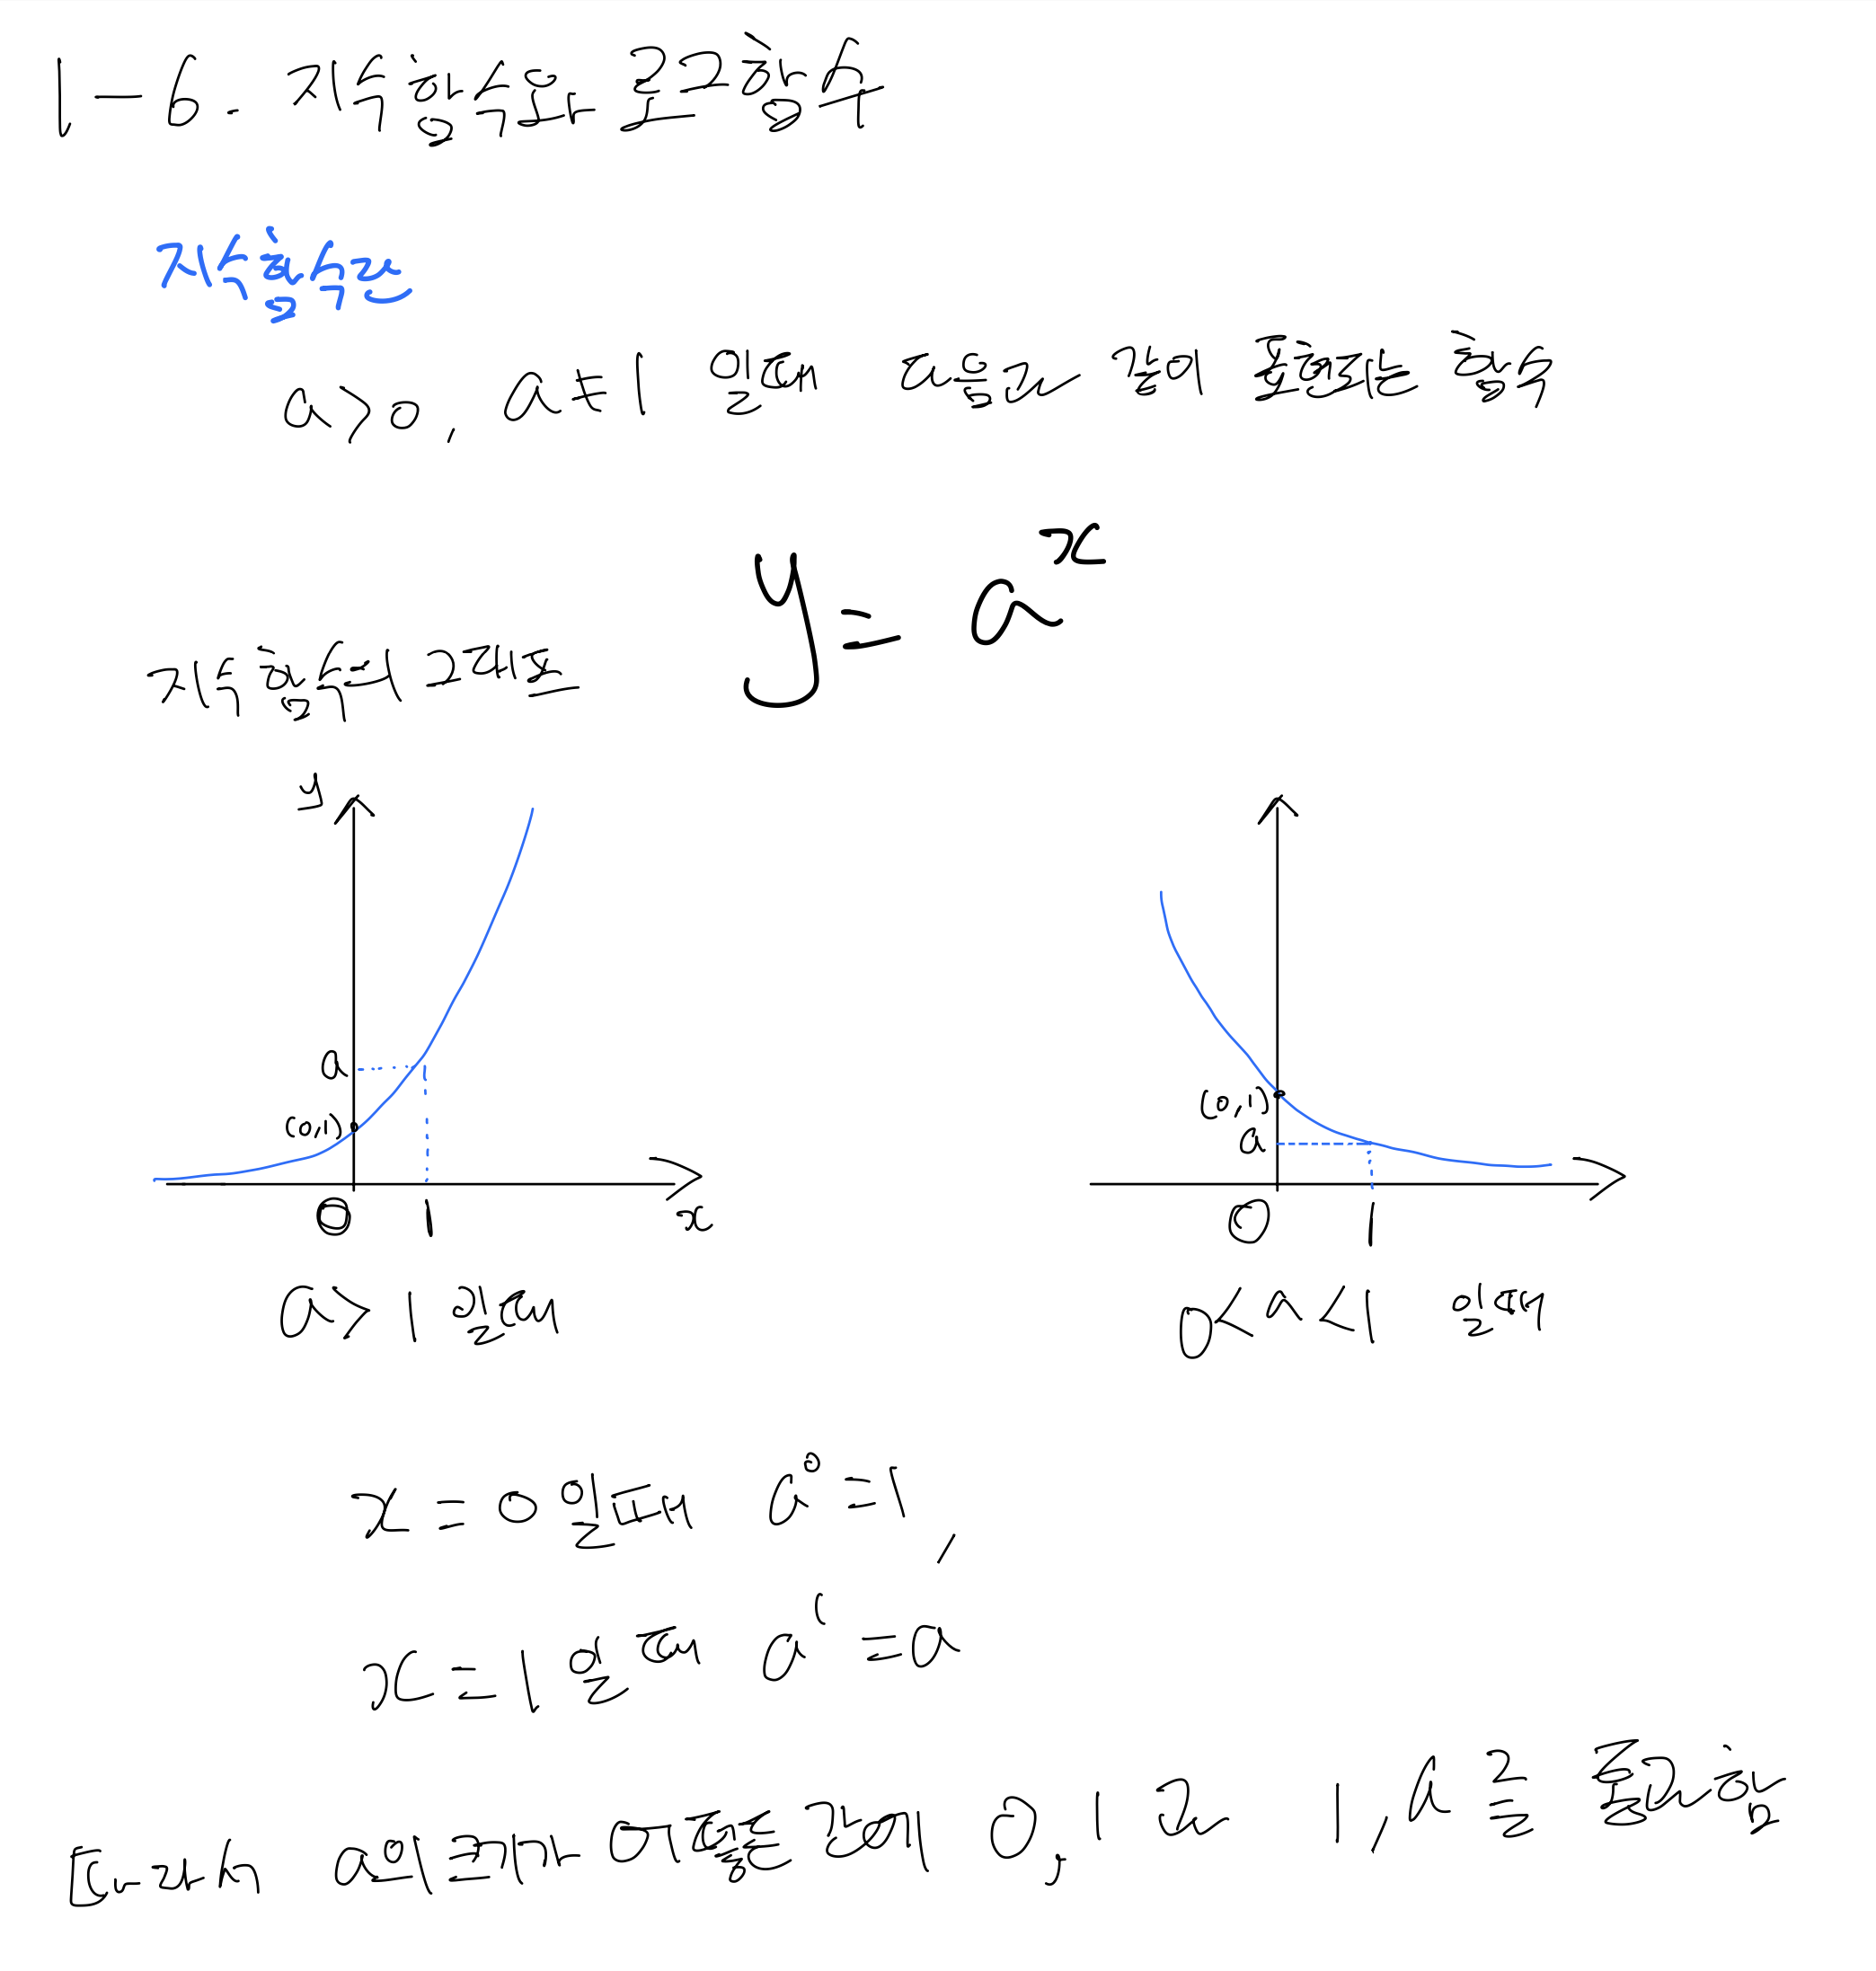 1-6. 지수함수와 로그함수
지수함수란
a>0, a≠1 일때 다음과 같이 표현되는 함수
y = a^x
지수함수의 그래프
y
a
(0,1)
0 1 x
a>1 일때
(0,1)
a
0 1
0<a<1 일때
x=0 일때 a^0=1,
x=1 일때 a^1=a
따라서 a의 크기가 어떻든 간에 0,1 과 1,a 를 통과함